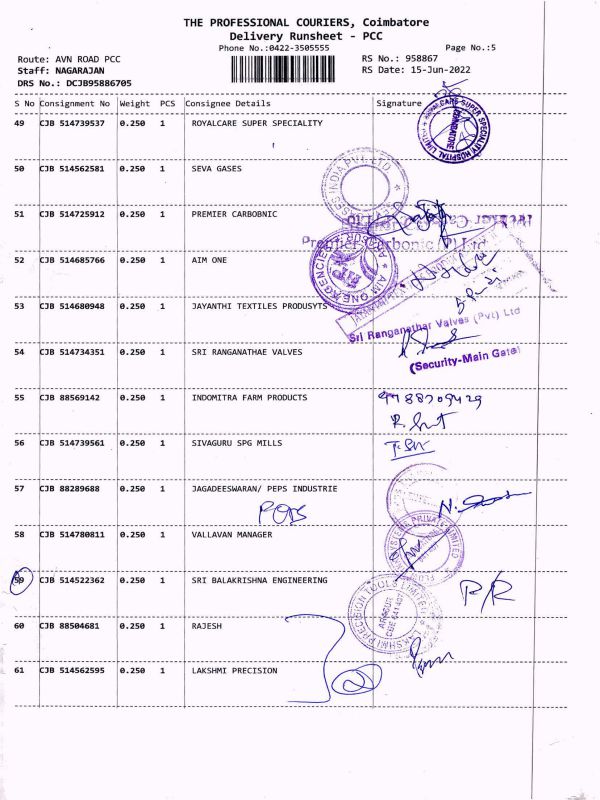 THE PROFESSIONAL COURIERS, Coimbatore
Delivery Runsheet - PCC
Phone No.:0422-3505555
Page No.:5
Route: AVN ROAD PCC
RS No.: 958867
Staff: NAGARAJAN
RS Date: 15-Jun-2022
DRS No.: DCJB95886705
S No Consignment No Weight PCS Consignee Details Signature
49 CJB 514739537 0.250 1 ROYALCARE SUPER SPECIALITY
50 CJB 514562581 0.250 1 SEVA GASES
51 CJB 514725912 0.250 1 PREMIER CARBOBNIC
Premier Carbonic (P) Ltd
52 CJB 514685766 0.250 1 AIM ONE
AIM ONE AGENCIES
53 CJB 514680948 0.250 1 JAYANTHI TEXTILES PRODUSYTS
Sri Ranganathar Valves (Pvt) Ltd
54 CJB 514734351 0.250 1 SRI RANGANATHAE VALVES
(Security-Main Gate)
55 CJB 88569142 0.250 1 INDOMITRA FARM PRODUCTS
56 CJB 514739561 0.250 1 SIVAGURU SPG MILLS
57 CJB 88289688 0.250 1 JAGADEESWARAN/ PEPS INDUSTRIE
58 CJB 514780811 0.250 1 VALLAVAN MANAGER
59 CJB 514522362 0.250 1 SRI BALAKRISHNA ENGINEERING
R/R
60 CJB 88504681 0.250 1 RAJESH
61 CJB 514562595 0.250 1 LAKSHMI PRECISION